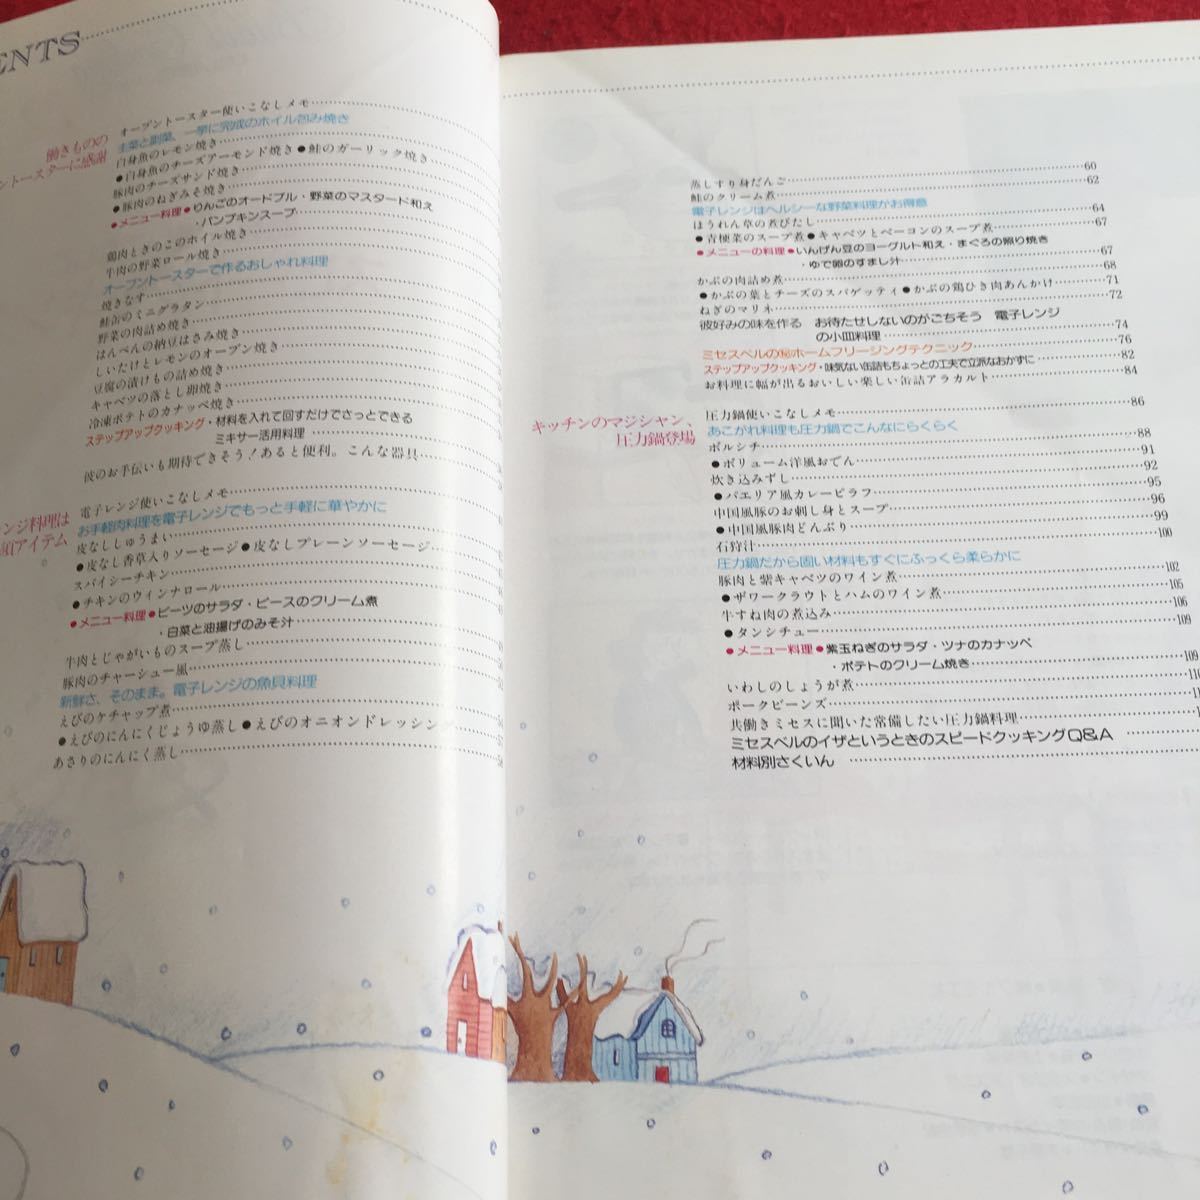 ENTS
働きものの
ントースターに感謝
オーブントースター使いこなしメモ
主菜と副菜、一挙に完成のホイル包み焼き
白身魚のレモン焼き
●白身魚のチーズアーモンド焼き●鮭のガーリック焼き
豚肉のチーズサンド焼き
●豚肉のねぎみそ焼き
●メニュー料理●りんごのオードブル・野菜のマスタード和え
・パンプキンスープ
鶏肉ときのこのホイル焼き
牛肉の野菜ロール焼き
オーブントースターで作るおしゃれ料理
焼きなす
鮭缶のミニグラタン
野菜の肉詰め焼き
はんぺんの納豆はさみ焼き
しいたけとレモンのオーブン焼き
豆腐の漬けもの詰め焼き
キャベツの落とし卵焼き
冷凍ポテトのカナッペ焼き
ステップアップクッキング・材料を入れて回すだけでさっとできる
ミキサー活用料理
彼のお手伝いも期待できそう！あると便利。こんな器具
ンジ料理は
頭アイテム
電子レンジ使いこなしメモ
お手軽肉料理を電子レンジでもっと手軽に華やかに
皮なししゅうまい
●皮なし香草入りソーセージ●皮なしプレーンソーセージ
スパイシーチキン
●チキンのウィンナロール
●メニュー料理●ビーツのサラダ・ピースのクリーム煮
・白菜と油揚げのみそ汁
牛肉とじゃがいものスープ蒸し
豚肉のチャーシュー風
新鮮さ、そのまま。電子レンジの魚貝料理
えびのケチャップ煮
●えびのにんにくじょうゆ蒸し●えびのオニオンドレッシング
あさりのにんにく蒸し 58
蒸しすり身だんご 60
鮭のクリーム煮 62
電子レンジはヘルシーな野菜料理がお得意
ほうれん草の煮びたし 64
●青梗菜のスープ煮●キャベツとベーコンのスープ煮 67
●メニューの料理●いんげん豆のヨーグルト和え・まぐろの照り焼き
・ゆで卵のすまし汁 67
かぶの肉詰め煮 68
●かぶの葉とチーズのスパゲッティ●かぶの鶏ひき肉あんかけ 71
ねぎのマリネ 72
彼好みの味を作る お待たせしないのがごちそう 電子レンジ
の小皿料理 74
ミセスベルの㊙ホームフリージングテクニック 76
ステップアップクッキング・味気ない缶詰もちょっとの工夫で立派なおかずに 82
お料理に幅が出るおいしい楽しい缶詰アラカルト 84
キッチンのマジシャン、
圧力鍋登場
圧力鍋使いこなしメモ 86
あこがれ料理も圧力鍋でこんなにらくらく
ボルシチ 88
●ボリューム洋風おでん 91
炊き込みずし 92
●パエリア風カレーピラフ 95
中国風豚のお刺し身とスープ 96
●中国風豚肉どんぶり 99
石狩汁 100
圧力鍋だから固い材料もすぐにふっくら柔らかに
豚肉と紫キャベツのワイン煮 102
●ザワークラウトとハムのワイン煮 105
牛すね肉の煮込み 106
●タンシチュー 109
●メニュー料理●紫玉ねぎのサラダ・ツナのカナッペ
・ポテトのクリーム焼き 109
いわしのしょうが煮 110
ポークビーンズ
共働きミセスに聞いた常備したい圧力鍋料理
ミセスベルのイザというときのスピードクッキングQ&A
材料別さくいん